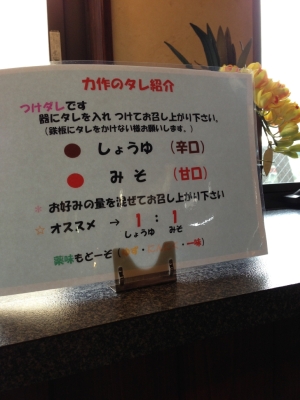 力作のタレ紹介
つけダレです
器にタレを入れ つけてお召し上がり下さい。
(鉄板にタレをかけない様お願いします。)
しょうゆ (辛口)
みそ (甘口)
お好みの量を混ぜてお召し上がり下さい
☆ オススメ → 1 : 1
しょうゆ みそ
薬味もどーぞ ・一味)